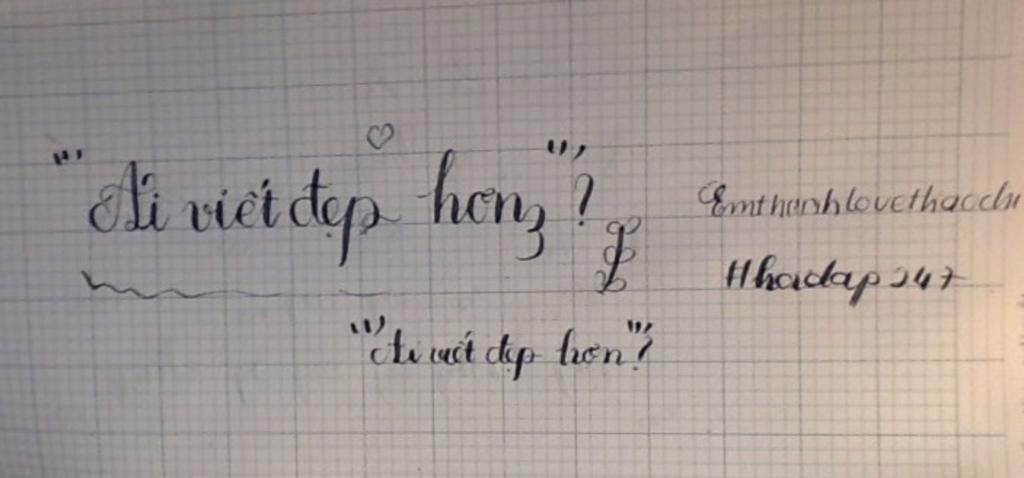 "Ai viết đẹp hơn"?
Emthanhlovethacchi
#hoidap247
"Ai viết đẹp hơn"?